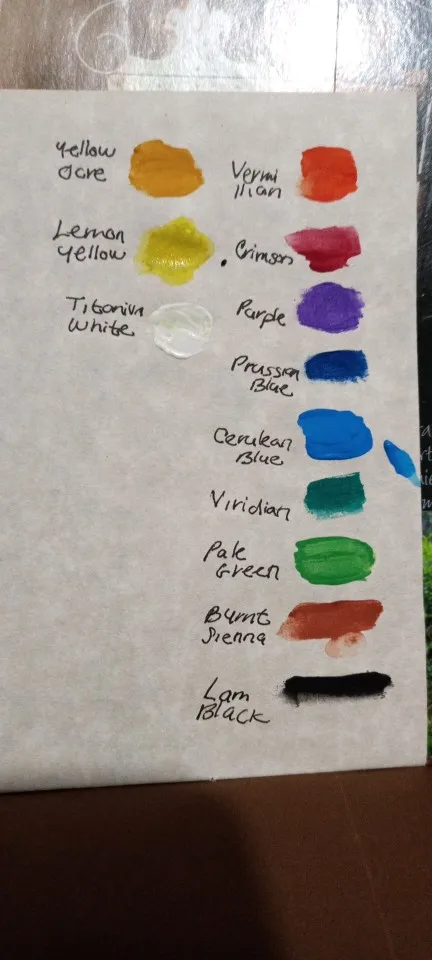 Yellow
Ocre
Lemon
Yellow
Titanium
White
Vermi
llian
Crimson
Purple
Prussian
Blue
Cerulean
Blue
Viridian
Pale
Green
Burnt
Sienna
Lam
Black